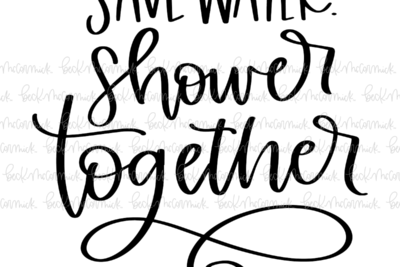 SAVE WATER.
shower
together